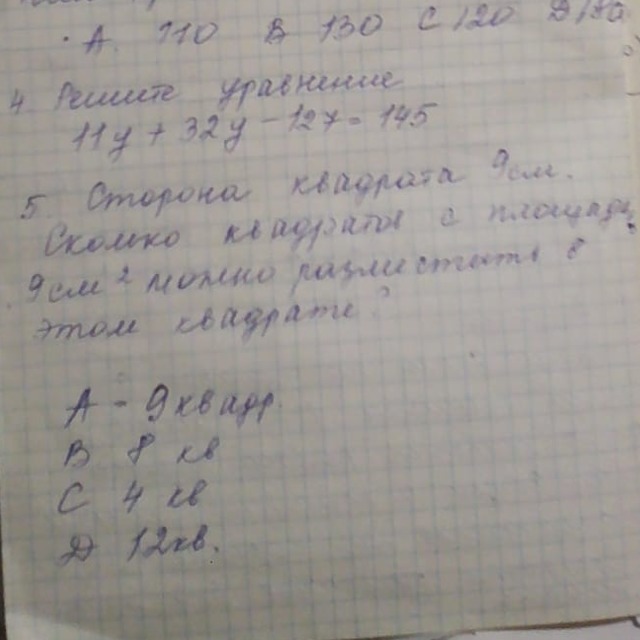 А. 110 В 130 С 120 Д
4 Решите уравнение
11у + 32у - 12у = 145
5. Сторона квадрата 9см.
Сколко квадратов с площадь
9см² можно разместить в
этом квадрате?
А - 9 квадр
В 8 кв
С 4 кв
Д 12 кв.